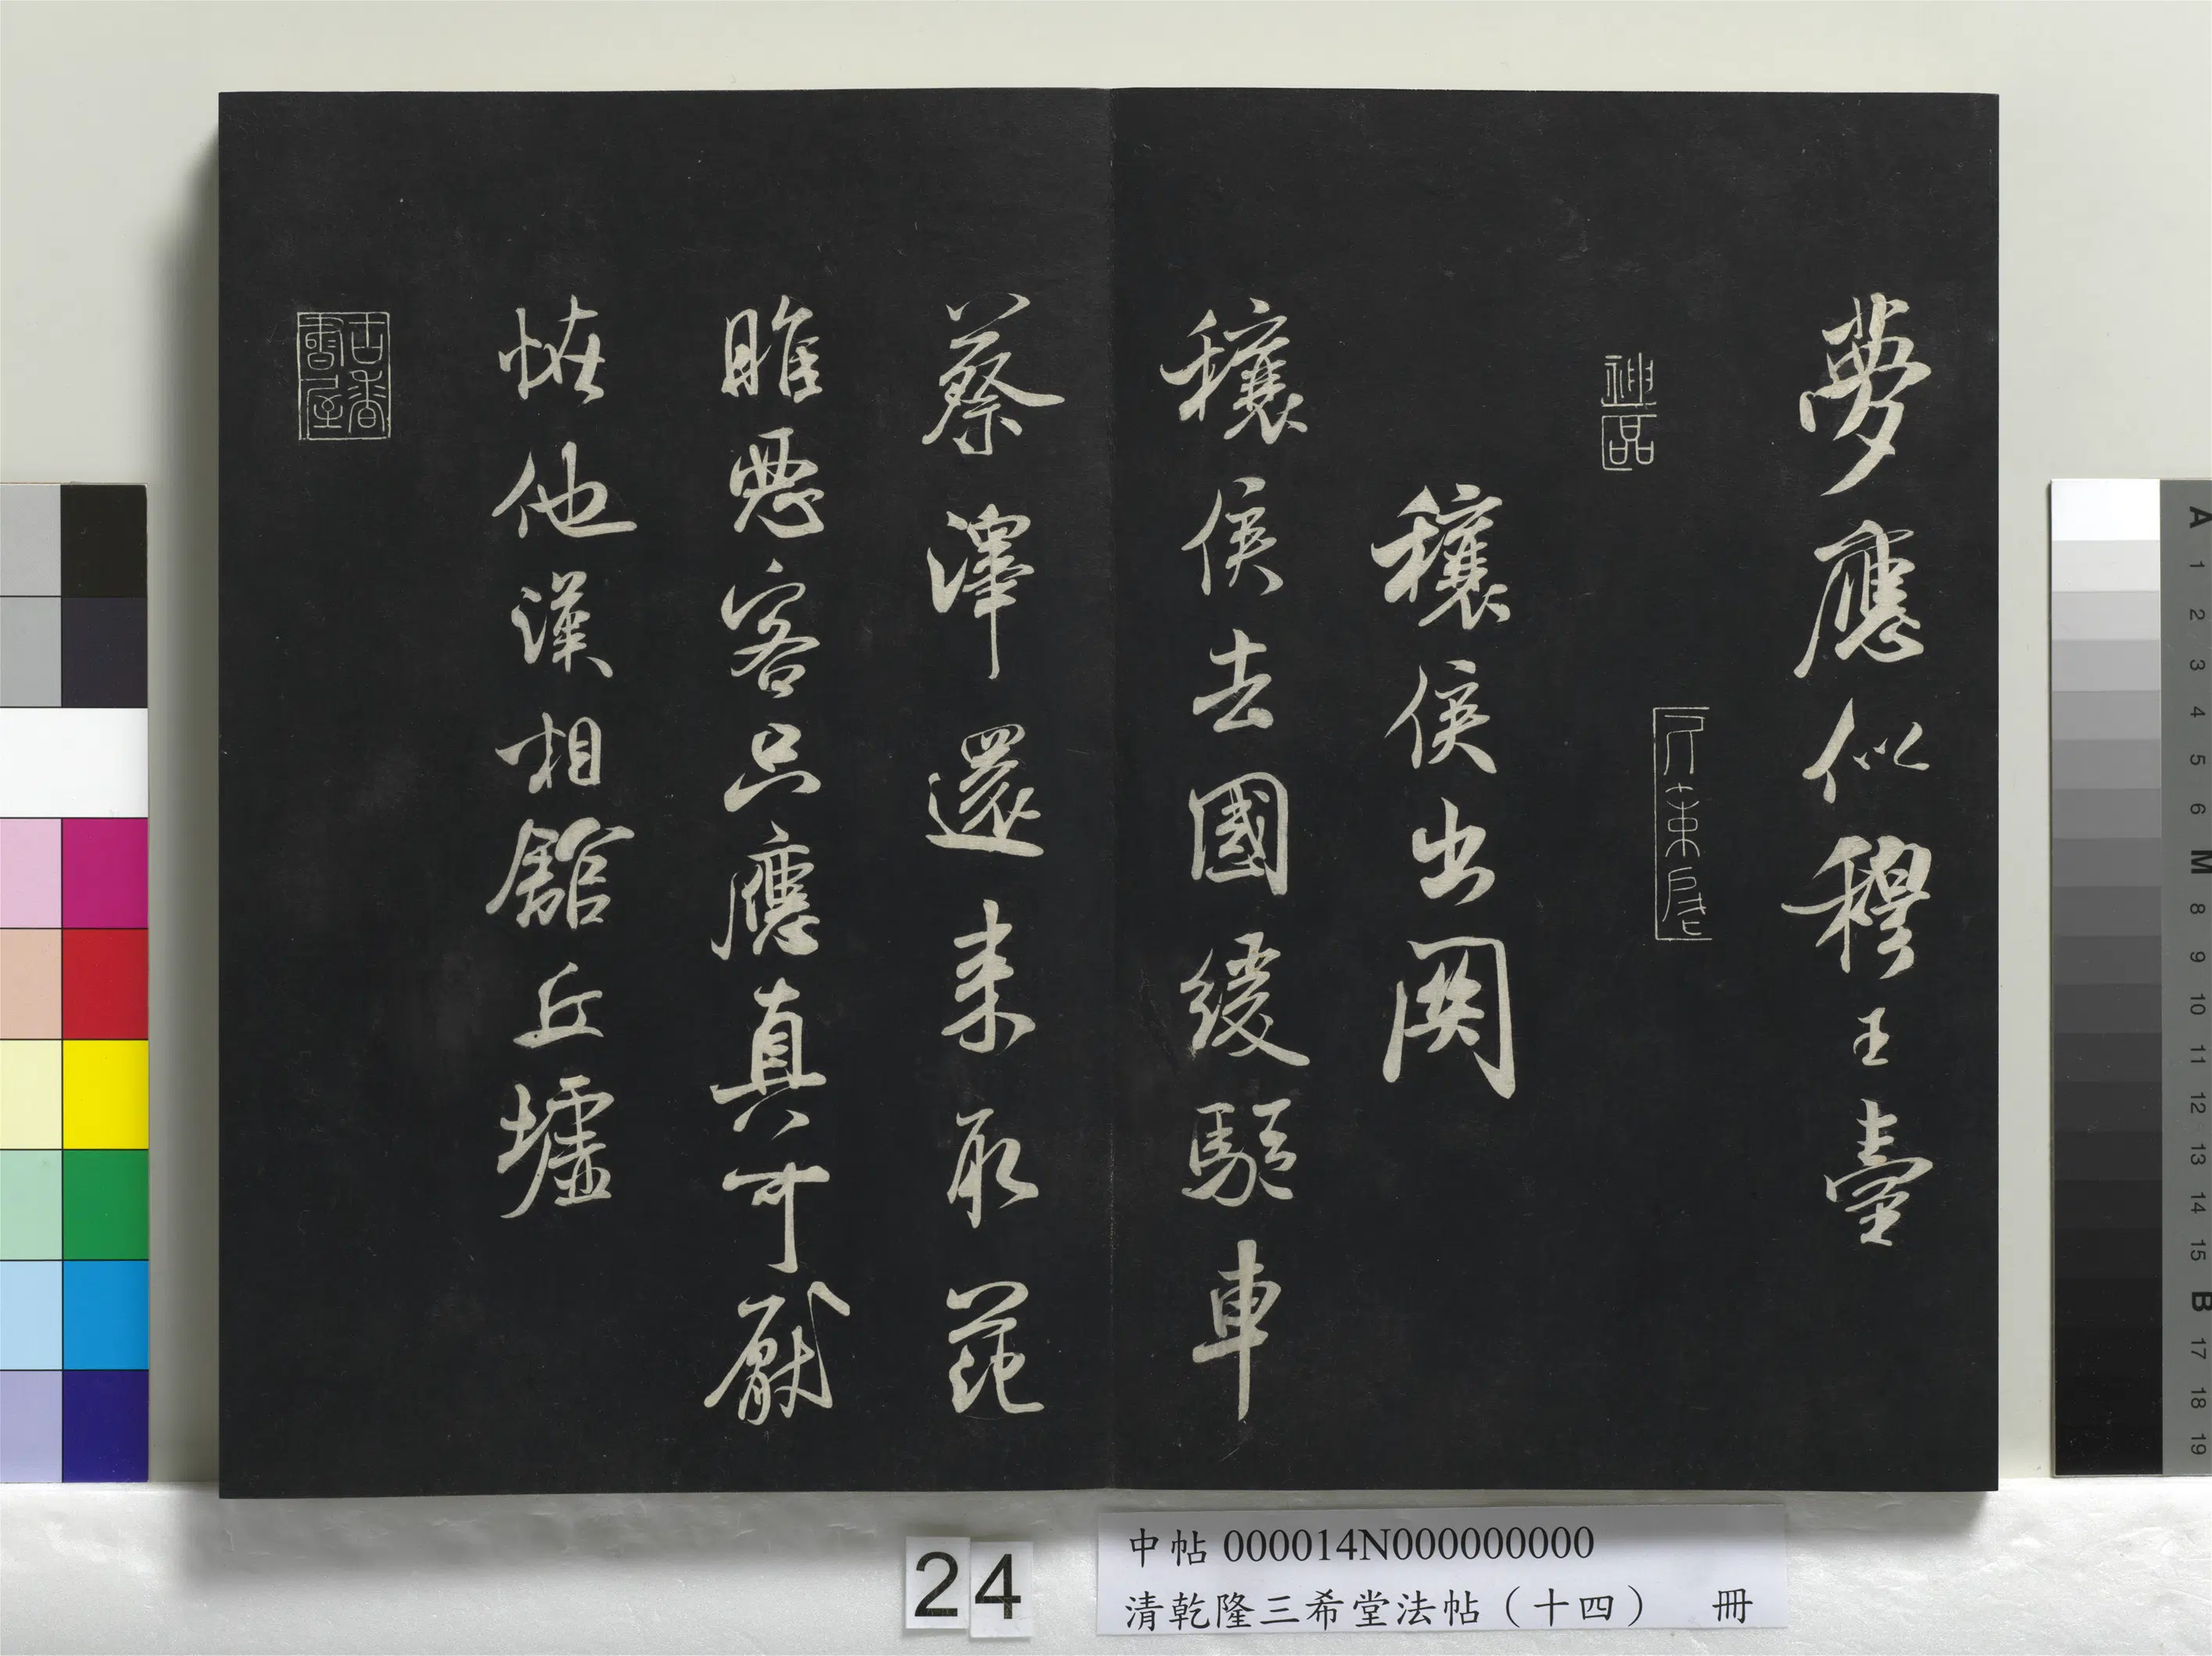 夢應似穆王臺
穰侯出關
穰侯去國緩驅車
蔡澤還來取范
睢惡客只應真可厭
恠他漢相館丘墟
古香書屋
24
中帖 000014N000000000
清乾隆三希堂法帖（十四） 冊
A 1 2 3 4 5 6 M 8 9 10 11 12 13 14 15 B 17 18 19